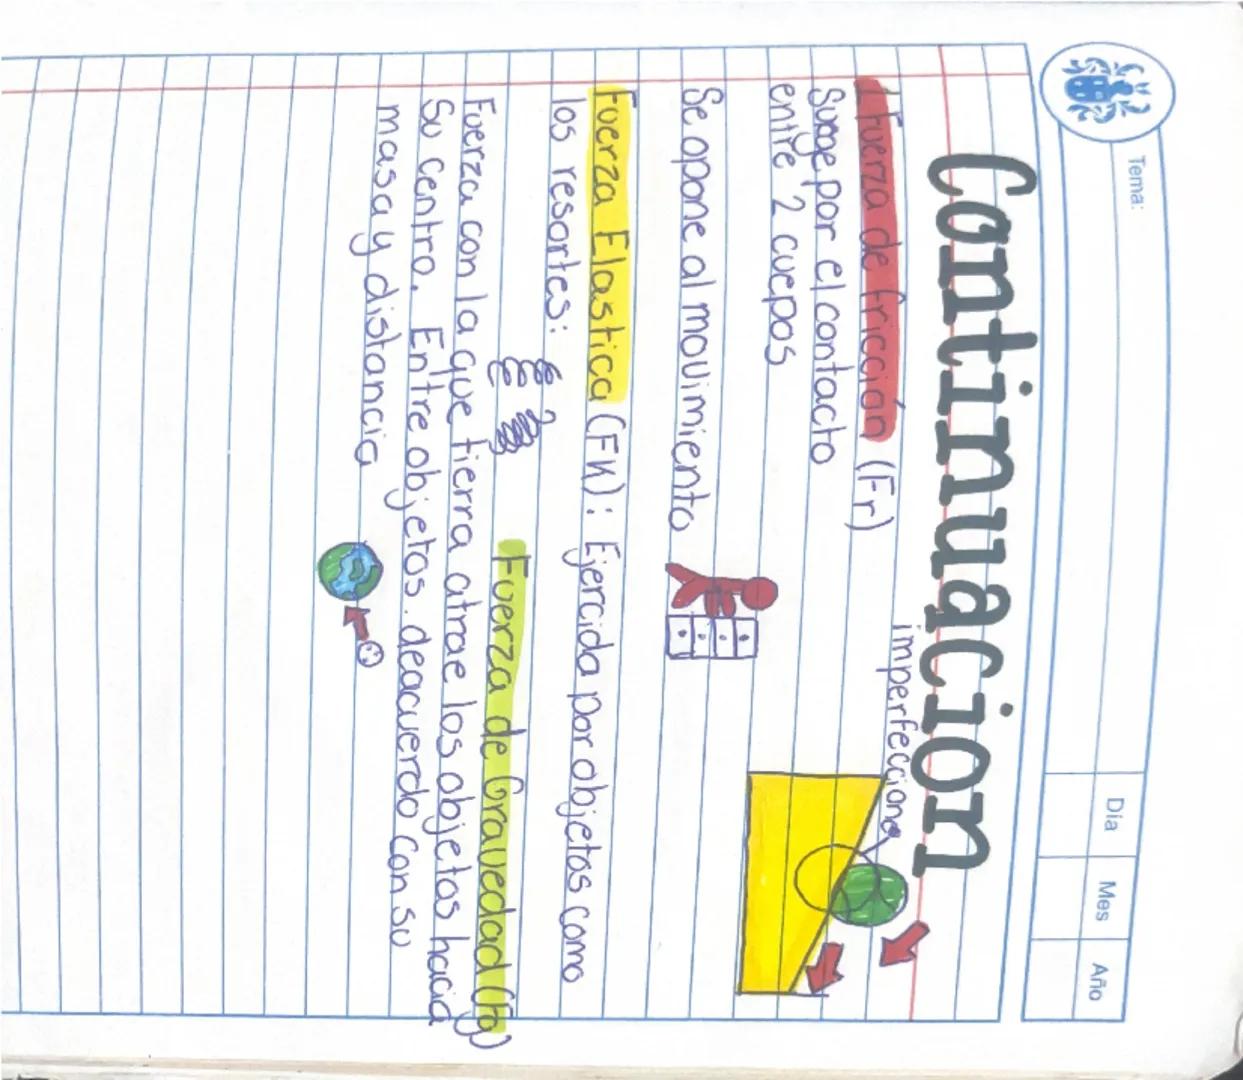 Tema:
Día
Mes
Año
Continuacion
Fuerza de fricción (Fr)
imperfecciones
Surge por el contacto
entre 2 cuepos
Se opone al movimiento
Fuerza Elastica (FK): Ejercida por objetos como
los resortes:
Fuerza de Gravedad (Fg)
Fuerza con la que tierra atrae los objetos hacia
Su centro. Entre objetos. deacuerdo con su
masa y distancia